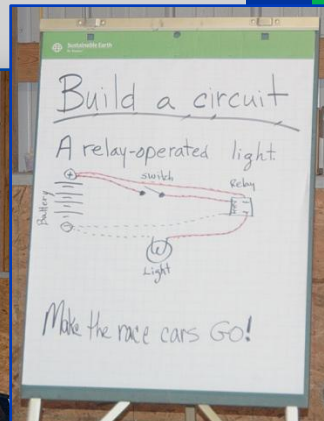 Sustainable Earth
Build a circuit
A relay-operated light.
switch
Relay
+
Battery
Light
Make the race cars GO!